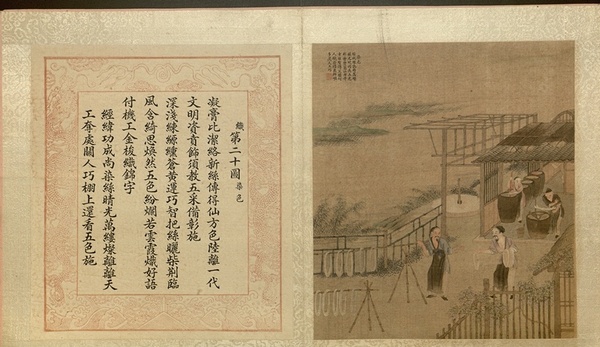 織第二十圖染色
凝膏比潔絡新絲傳得仙方色陸離一代
文明資賁飾須教五采備彰施
深淺練纁蒼黃運巧智把絲曬柴荆臨
風含綺思煥然五色紛爛若雲霞熾好語
付機工金梭織錦字
經緯功成尚染絲晴光萬縷燦離離天
工奪處關人巧棚上還看五色施